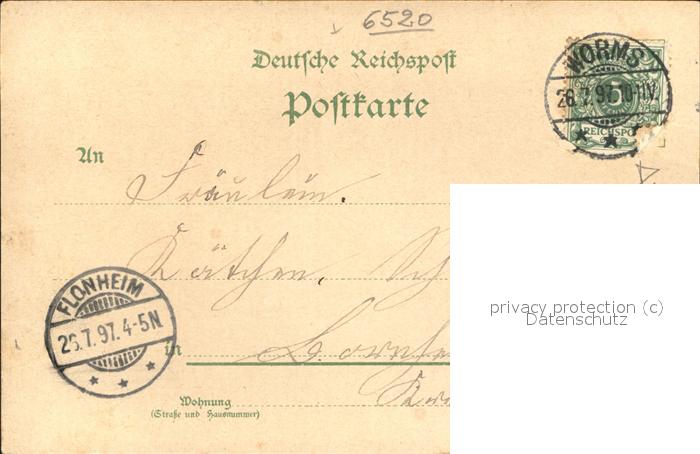 6520
Deutsche Reichspost
Postkarte
WORMS
26.7.97.10-11V.
5
REICHSPO
An
Fräulein.
Kätchen. Sch
FLONHEIM
26.7.97.4-5N
in
Wohnung
(Straße und Hausnummer)
privacy protection (c)
Datenschutz